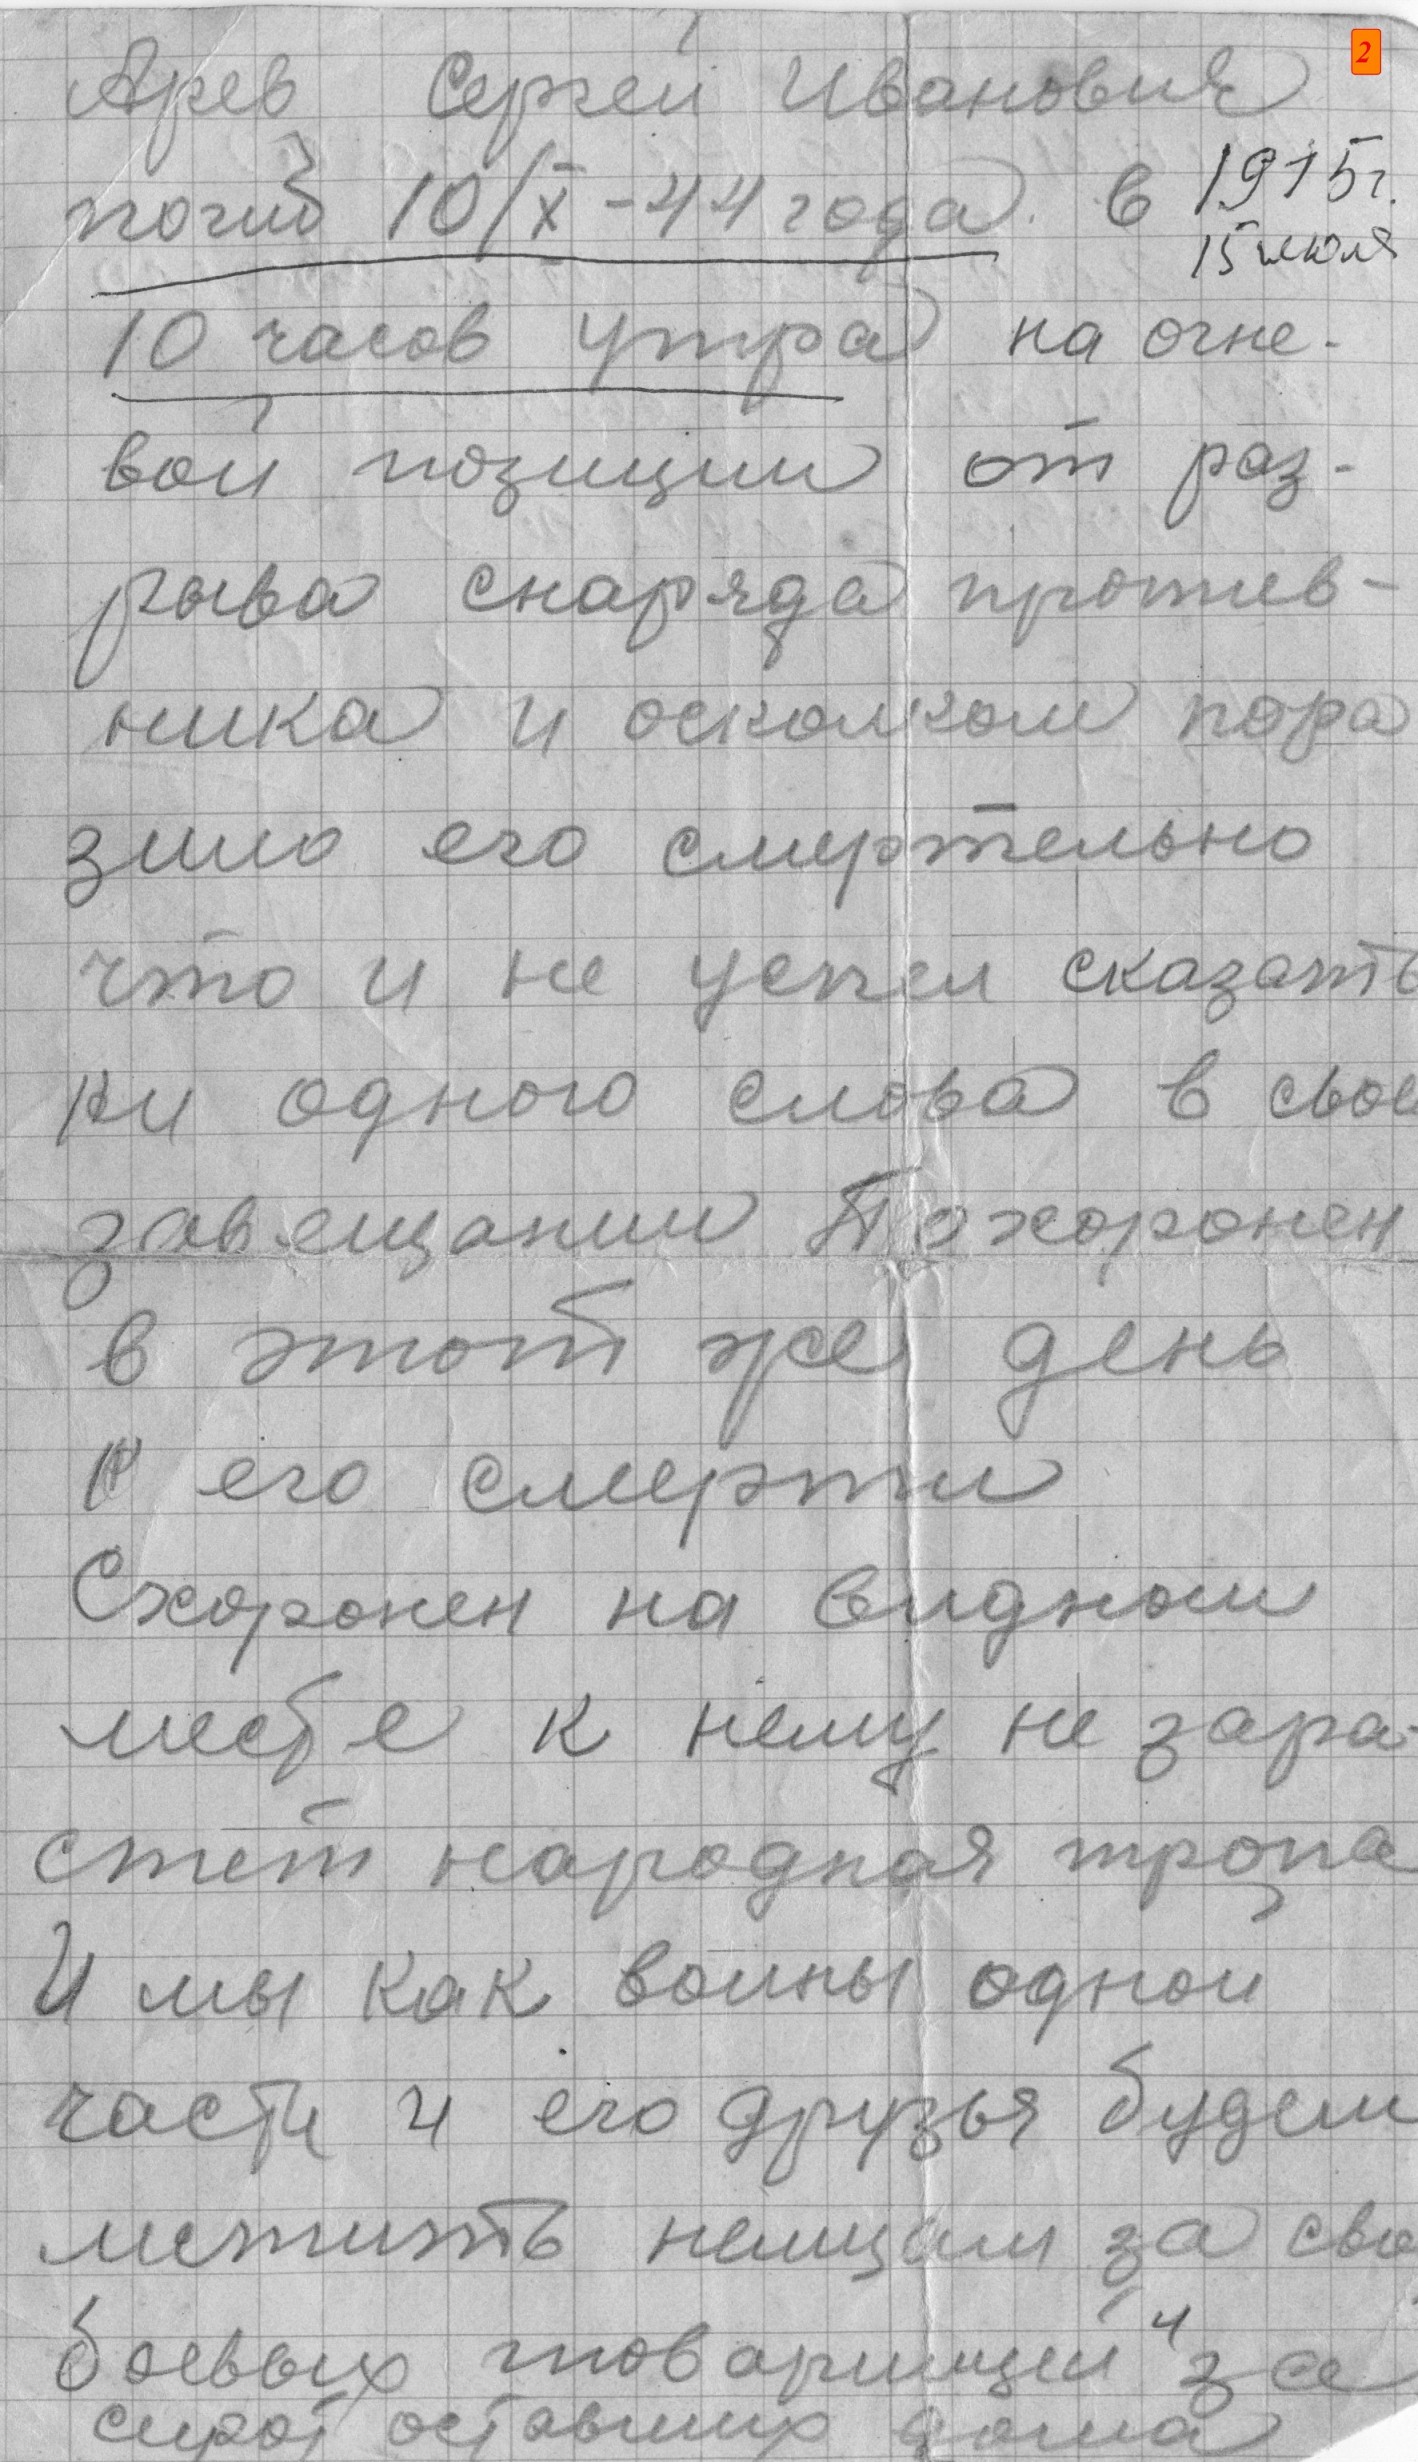 2
Арев Сергей Иванович
погиб 10/X -44 года. в 1915 г.
15 июля
10 часов утра на огне-
вой позиции от раз-
рыва снаряда против-
ника и осколком пора
зило его смертельно
что и не успел сказать
ни одного слова в свое
завещании Похоронен
в этот же день
его смерти
Схоронен на видном
месте к нему не зара-
стет народная тропа
И мы как воины одной
части и его друзья будем
мстить немцам за сво
боевых товарищей и за
сирот оставших дома